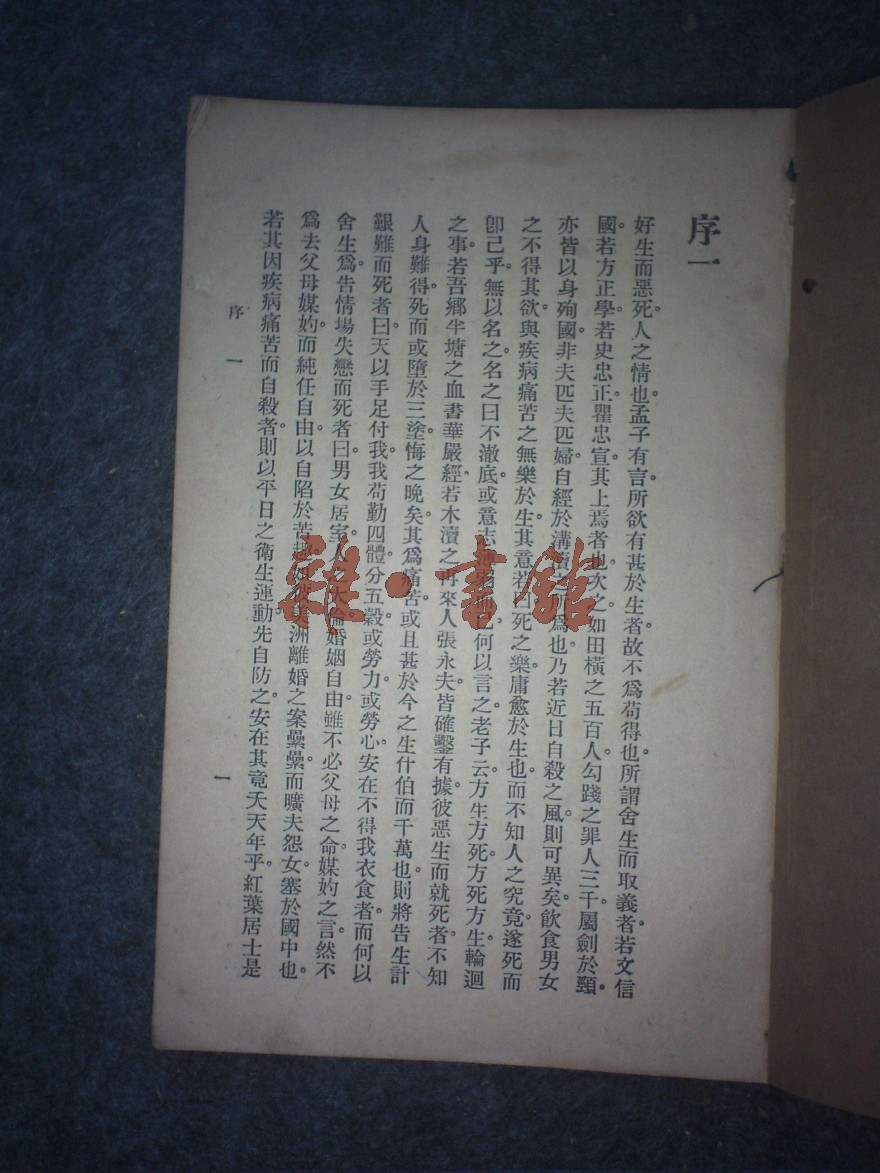 序一
好生而惡死。人之情也。孟子有言。所欲有甚於生者。故不爲苟得也。所謂舍生而取義者。若文信
國。若方正學。若史忠正。瞿忠宣。其上焉者也。次之。如田橫之五百人。勾踐之罪人三千。屬劍於頸。
亦皆以身殉國。非夫匹夫匹婦。自經於溝瀆之所爲也。乃若近日自殺之風。則可異矣。飲食男女
之不得其欲。與疾病痛苦之無樂於生。其意若曰死之樂。庸愈於生也。而不知人之究竟。遂死而
卽已乎。無以名之。名之曰不澈底。或意志而已。何以言之。老子云。方生方死。方死方生。輪迴
之事。若吾鄉半塘之血書華嚴經。若木瀆之再來人張永夫。皆確鑿有據。彼惡生而就死者。不知
人身難得。死而或墮於三塗。悔之晚矣。其爲痛苦。或且甚於今之生什伯而千萬也。則將告生計
艱難而死者曰。天以手足付我。我苟勤四體。分五穀。或勞力。或勞心。安在不得我衣食者。而何以
舍生。爲告情場失戀而死者曰。男女居室。人之大倫。婚姻自由。雖不必父母之命。媒妁之言。然不
爲去父母媒妁。而純任自由。以自陷於苦趣。如彼美洲離婚之案纍纍。而曠夫怨女塞於國中也。
若其因疾病痛苦而自殺者。則以平日之衛生運動。先自防之。安在其竟夭天年乎。紅葉居士是
序 一
一
雜·書館